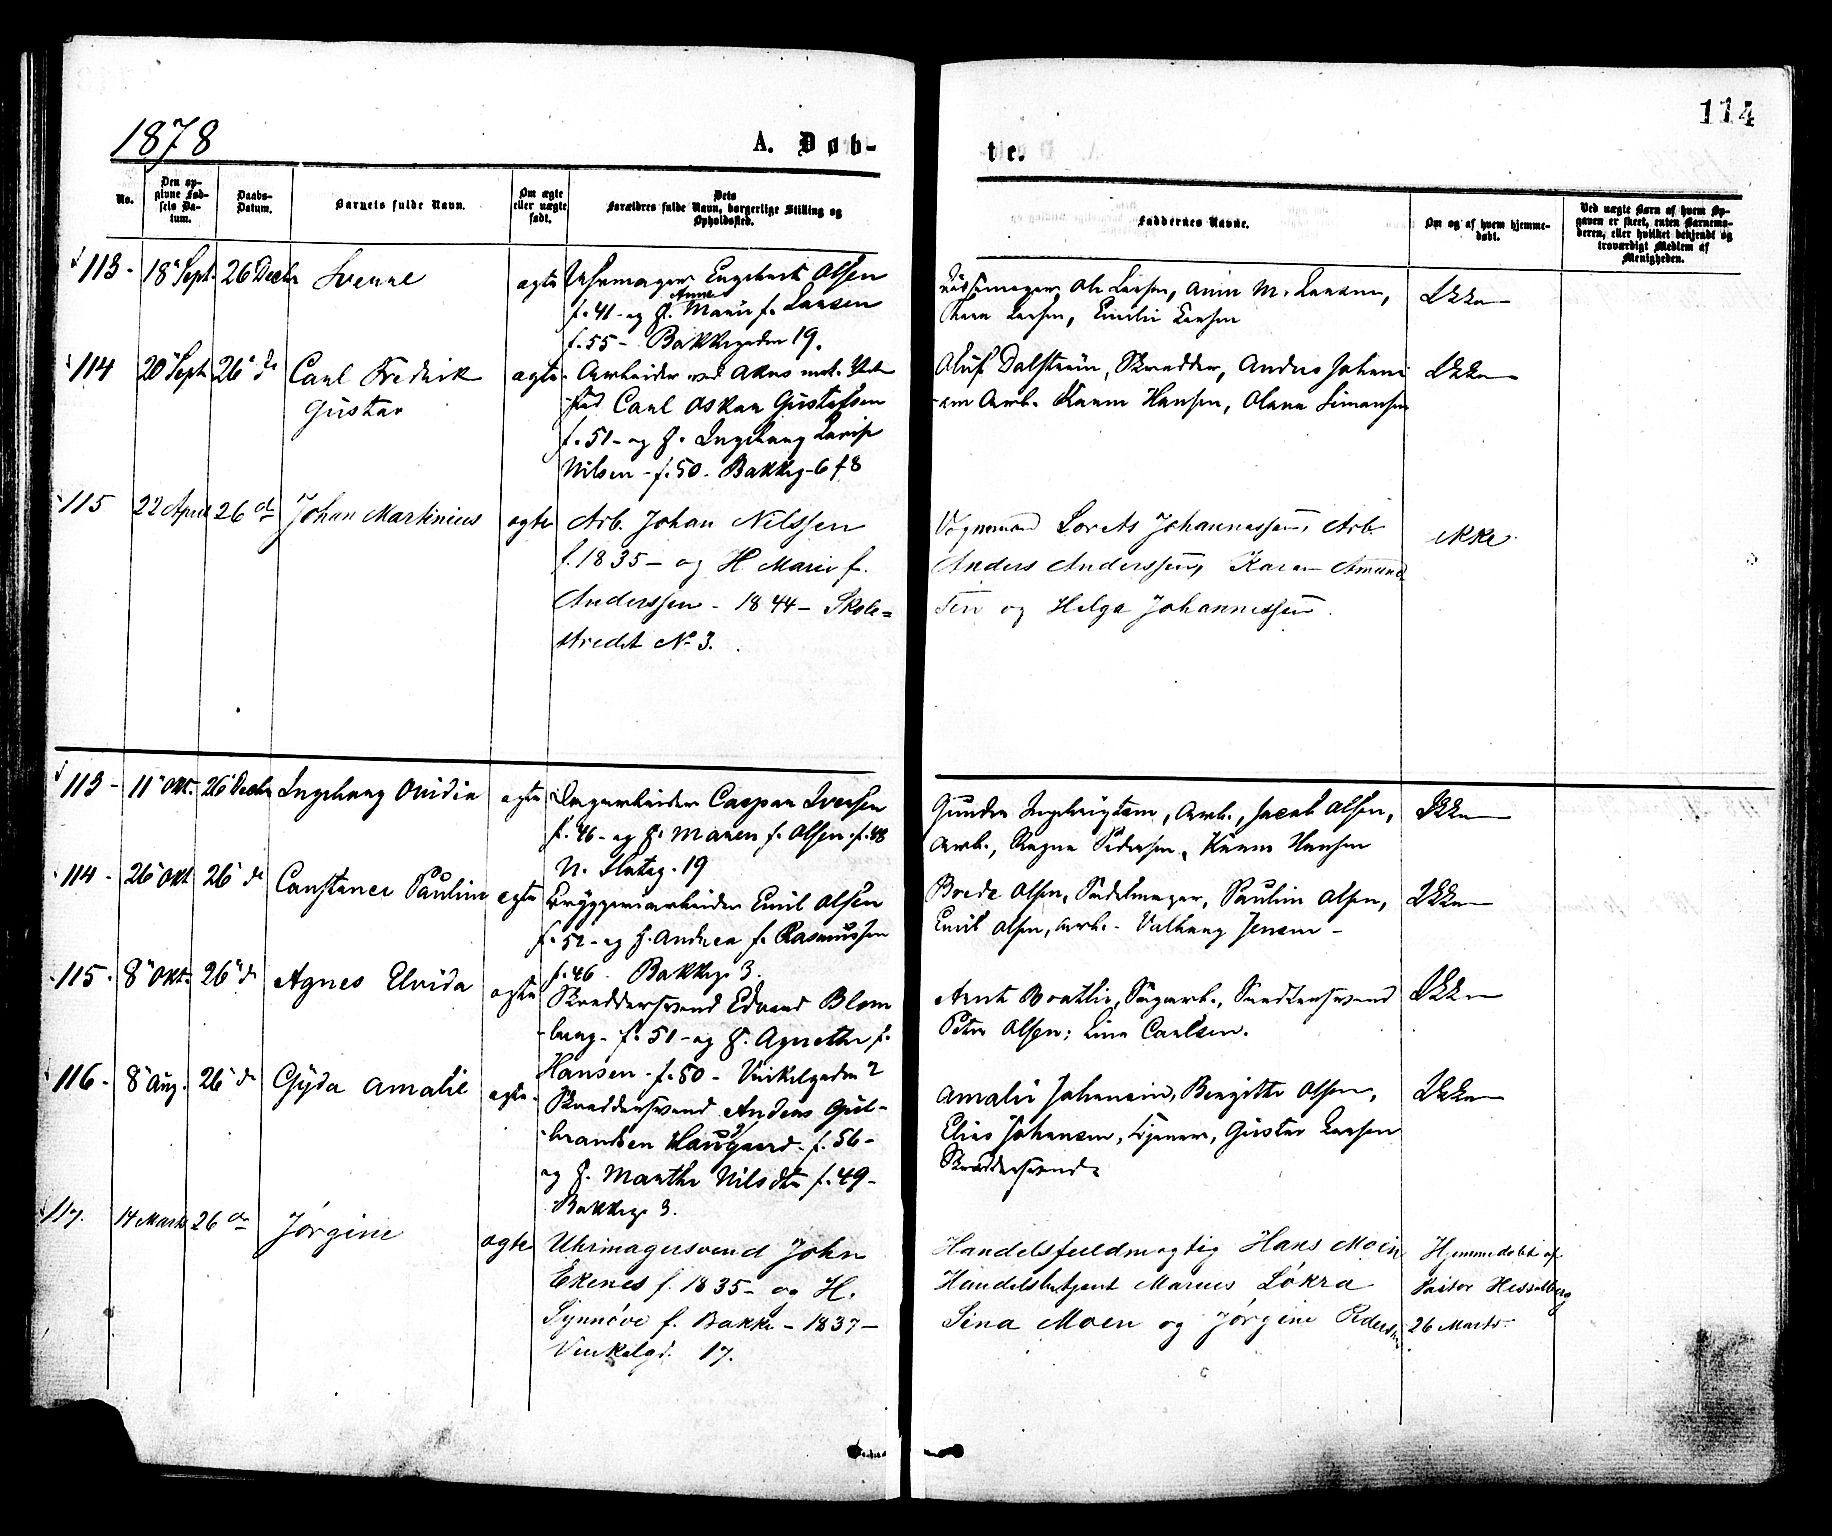 1878
A. Døb-
te.
114
No.
Den op-
givne Fød-
sels Da-
tum.
Daabs-
Datum.
Barnets fulde Navn.
Om ægte
eller uægte
født.
Dets
Forældres fulde Navn, borgerlige Stilling og
Opholdssted.
Faddernes Navne.
Om og af hvem hjemme-
døbt.
Ved uægte Børn af hvem Op-
gaven er skeet, enten Barnemo-
deren, eller hvilket bekjendt og
troværdigt Medlem af
Menigheden.
113 - 18 Sept. 26 Decbr ægte Uhrmager Engebret Olsen
f. 41 - og H. Anne Marie f. Larsen
f. 55 - Bakkegaden 19.
Ole Larsen, Anne M. Larsen,
Larsen, Emilie Larsen
Ikke
114 20 Sept 26 do Carl Fredrik
Gustav
ægte Arbeider ved Akers mek. Værk-
sted Carl Oskar Gustafsen
f. 51 - og H. Ingeborg Lovise
Nilsen - f. 50. Bakkeg. 6 & 8
Oluf Dalstrøm, Skrædder, Andrea Johans-
en Arb. Karen Hansen, Olava Simensen
Ikke
115 22 April 26 do Johan Martinius ægte Arb. Johan Nilssen
f. 1835 - og H. Marie f.
Anderssen - 1844 - Skole-
strædet No 3.
Vognmand Lorets Johannessen, Arb.
Anders Anderssen, Karen Amund-
sen og Helga Johannessen.
ikke
113 - 11 Okt. 26 Decbr Ingeborg Ovidia ægte Dagarbeider Caspar Iversen
f. 46 - og H. Maren f. Olsen f. 48
N. Slotsg. 19
Gunder Ingebrigtsen, Arb., Jacob Olsen,
Arb., Ragna Pedersen, Karen Hansen
Ikke
114 - 26 Okt 26 do Constance Pauline ægte Bryggeriarbeider Emil Olsen
f. 52 - og H. Andrea f. Rasmussen
f. 46. Bakkeg. 3.
Brede Olsen, Sadelmager, Pauline Olsen,
Emil Olsen, Arb. - Valborg Jensen -
Ikke
115 - 8 Okt. 26 do Agnes Elvida ægte Skræddersvend Edvard Blom-
berg - f. 51 - og H. Agnethe f.
Hansen - f. 50 - Vinkelgaden 2
Petra Olsen; Lina Carlsen.
Ikke
116 - 8 Aug. 26 do Gyda Amalie ægte Skræddersvend Anders Gul-
brandsen Haugaard - f. 56 -
og H. Marthe Nilsdtr f. 49 -
Bakkeg. 3.
Amalie Johansen, Birgitte Olsen,
Elias Johansen, Gustav Larsen
Skræddersvend.
Ikke
117. 14 Marts 26 do Jørgine ægte Uhrmagersvend John
Ekenes f. 1835 - og H.
Synnøve f. Bakke - 1837 -
Vinkelgd. 17.
Handelsfuldmægtig Hans Moen
Handelsbetjent Marius Løkra
Sina Moen og Jørgine Pedersen
Hjemmedøbt af
Pastor Hesselberg
26 Marts